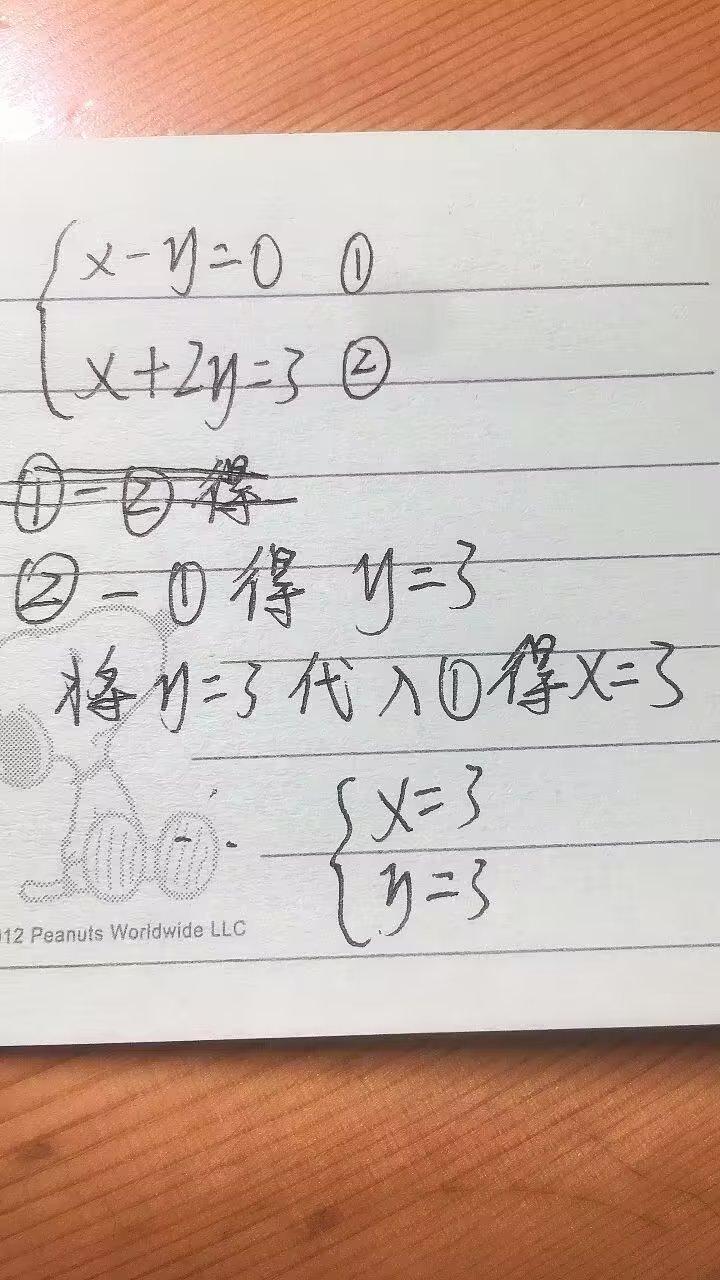 x-y=0 ①
x+2y=3 ②
①-②得
②-①得 y=3
将y=3代入①得x=3
x=3
y=3
012 Peanuts Worldwide LLC